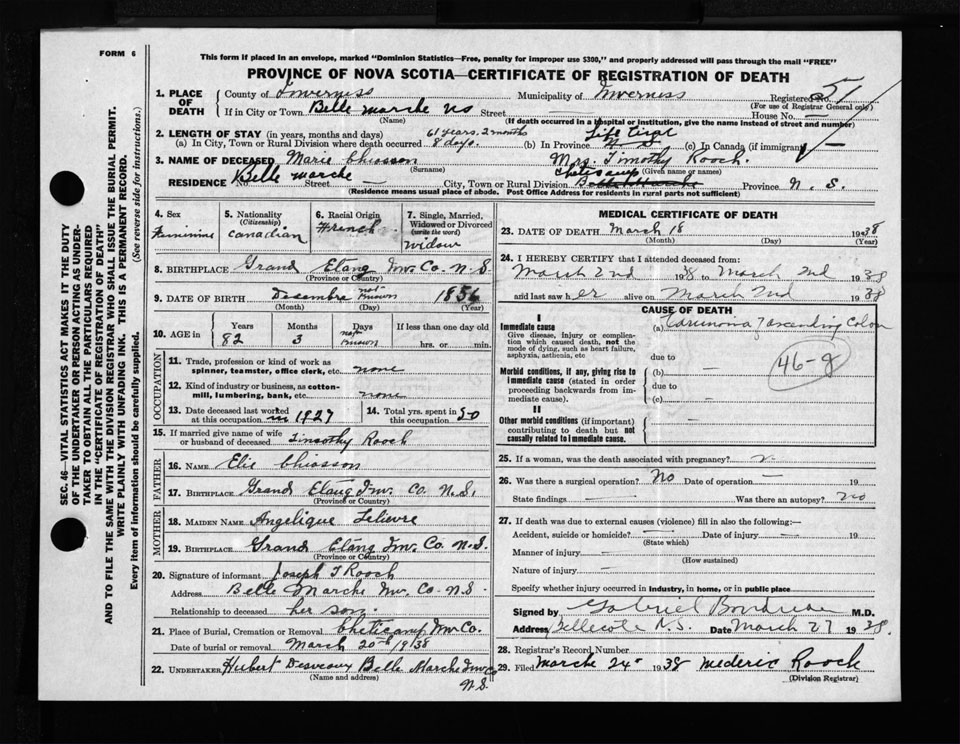 FORM 6
This form if placed in an envelope, marked "Dominion Statistics—Free, penalty for improper use $300," and properly addressed will pass through the mail "FREE"
PROVINCE OF NOVA SCOTIA—CERTIFICATE OF REGISTRATION OF DEATH
1. PLACE OF DEATH
County of Inverness Municipality of Inverness Registered No. 51
(For use of Registrar General only)
If in City or Town Belle Marche NS Street House No. —
(Name) (If death occurred in a hospital or institution, give the name instead of street and number)
2. LENGTH OF STAY (in years, months and days) 61 years, 2 months Life time
(a) In City, Town or Rural Division where death occurred 8 days. (b) In Province N S (c) In Canada (if immigrant) —
3. NAME OF DECEASED Marie Chiasson Mrs. Timothy Rooch.
(Surname) (Given name or names)
RESIDENCE No. Belle Marche Street City, Town or Rural Division Cheticamp Province N. S.
(Residence means usual place of abode. Post Office Address for residents in rural parts not sufficient)
4. Sex Feminine
5. Nationality (Citizenship) Canadian
6. Racial Origin French
7. Single, Married, Widowed or Divorced (write the word) widow
8. BIRTHPLACE Grand Etang Inv. Co. N.S.
(Province or Country)
9. DATE OF BIRTH Desembre not known 1856
(Month) (Day) (Year)
10. AGE in Years 82 Months 3 Days not known If less than one day old hrs. or min.
OCCUPATION
11. Trade, profession or kind of work as spinner, teamster, office clerk, etc. none
12. Kind of industry or business, as cotton-mill, lumbering, bank, etc. none
13. Date deceased last worked at this occupation in 1927
14. Total yrs. spent in this occupation 50
15. If married give name of wife or husband of deceased Timothy Rooch
FATHER
16. NAME Elie Chiasson
17. BIRTHPLACE Grand Etang Inv. Co. N.S.
(Province or Country)
MOTHER
18. MAIDEN NAME Angelique Lelievre
19. BIRTHPLACE Grand Etang Inv. Co. N.S.
(Province or Country)
20. Signature of informant Joseph T Rooch
Address Belle Marche Inv Co. N.S.
Relationship to deceased her son.
21. Place of Burial, Cremation or Removal Cheticamp Inv Co.
Date of burial or removal March 20th 1938
22. UNDERTAKER Hubert Desveaux Belle Marche Inv Co
(Name) (Address)
N.S.
MEDICAL CERTIFICATE OF DEATH
23. DATE OF DEATH March 18 1938
(Month) (Day) (Year)
24. I HEREBY CERTIFY that I attended deceased from:
March 2nd 1938 to March 2nd 1938
and last saw her alive on March 2nd 1938
CAUSE OF DEATH
I
Immediate cause
Give disease, injury or complication which caused death, not the mode of dying, such as heart failure, asphyxia, asthenia, etc
(a) Carcinoma of ascending Colon
due to
46-g
Morbid conditions, if any, giving rise to immediate cause (stated in order proceeding backwards from immediate cause).
(b) —
due to
(c) —
II
Other morbid conditions (if important) contributing to death but not causally related to immediate cause.
25. If a woman, was the death associated with pregnancy?
26. Was there a surgical operation? No Date of operation — 19
State findings — Was there an autopsy? no
27. If death was due to external causes (violence) fill in also the following:—
Accident, suicide or homicide? — Date of injury — 19
(State which)
Manner of injury —
(How sustained)
Nature of injury —
Specify whether injury occurred in industry, in home, or in public place
Signed by Gabriel Boudreau M.D.
Address Bellecote N.S. Date March 27 1938.
28. Registrar's Record Number
29. Filed Marche 24 1938 Mederic Rooch
(Division Registrar)
SEC. 46—VITAL STATISTICS ACT MAKES IT THE DUTY
OF THE UNDERTAKER OR PERSON ACTING AS UNDER-
TAKER TO OBTAIN ALL THE PARTICULARS REQUIRED
IN THE "CERTIFICATE OF REGISTRATION OF DEATH"
AND TO FILE THE SAME WITH THE DIVISION REGISTRAR WHO SHALL ISSUE THE BURIAL PERMIT.
WRITE PLAINLY WITH UNFADING INK. THIS IS A PERMANENT RECORD.
Every item of information should be carefully supplied. (See reverse side for instructions.)